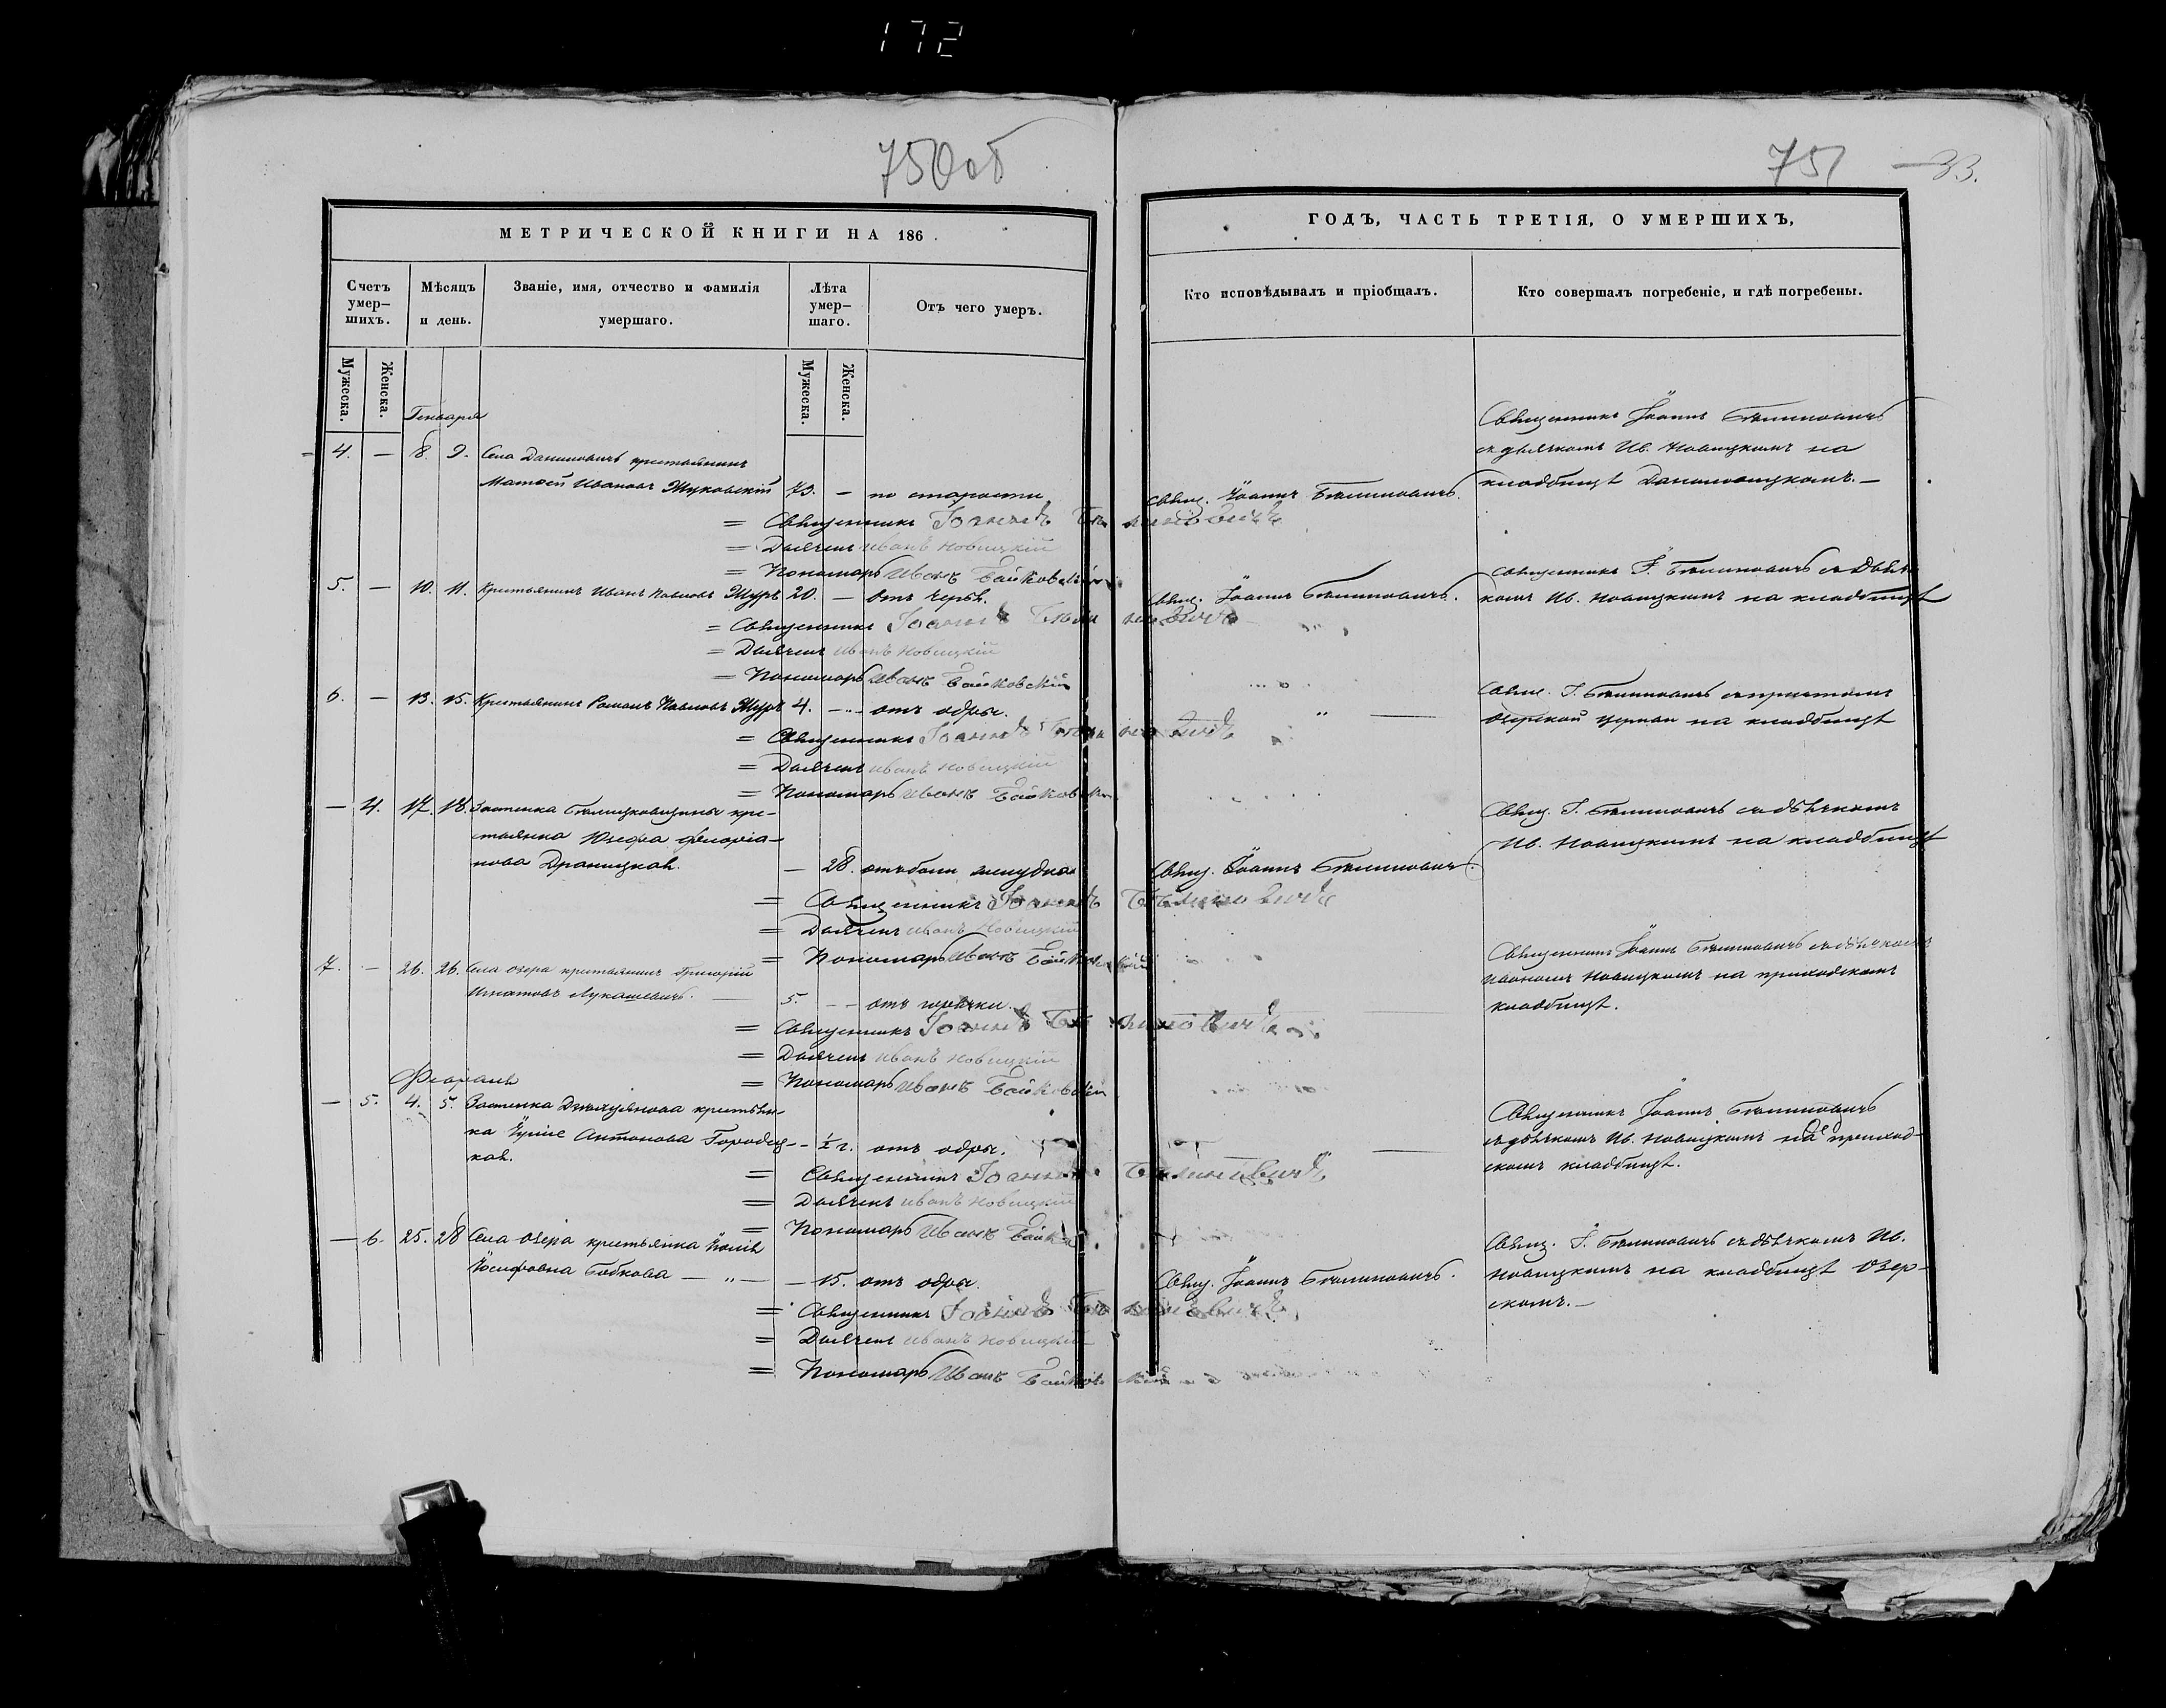 172
750об
МЕТРИЧЕСКОЙ КНИГИ НА 186 .
Счетъ умер-шихъ.
Мѣсяцъ и день.
Званіе, имя, отчество и фамилія умершаго.
Лѣта умер-шаго.
Отъ чего умеръ.
Мужеска.
Женска.
Мужеска.
Женска.
Генваря
4. — 8. 9. Села Даниловичъ крестьянинъ
Матѳей Ивановъ Жуковскій 73. — по старости
= Священникъ Іоаннъ Бѣлиновичъ
= Дьячекъ Иванъ Новицкій
= Пономарь Иванъ Байковскій
5. — 10. 11. Крестьянинъ Иванъ Павловъ Журъ 20. — отъ
= Священникъ Іоаннъ Бѣлиновичъ
= Дьячекъ Иванъ Новицкій
= Пономарь Иванъ Байковскій
6. — 13. 15. Крестьянинъ Романъ Павловъ Журъ 4. — отъ одры.
= Священникъ Іоаннъ Бѣлиновичъ
= Дьячекъ Иванъ Новицкій
= Пономарь Иванъ Байковскій
— 4. 17. 18. Застенка кре-
стьянка Юзефа Флоріа-
нова Драницкая. — 28. отъ боли желудка
= Священникъ Іоаннъ Бѣлиновичъ
= Дьячекъ Иванъ Новицкій
= Пономарь Иванъ Байковскій
7. — 26. 26. Села Озера крестьянинъ Григорій
Игнатовъ Лукашевичъ. — 5. — отъ горячки.
= Священникъ Іоаннъ Бѣлиновичъ
= Дьячекъ Иванъ Новицкій
= Пономарь Иванъ Байковскій
Февраль
— 5. 4. 5. Застенка крестьян-
ка Антонова Городец-
кая. — ½ г. отъ одры.
= Священникъ Іоаннъ Бѣлиновичъ
= Дьячекъ Иванъ Новицкій
= Пономарь Иванъ Байковскій
— 6. 25. 28 Села Озера крестьянка
Іосифовна Бобкова — „ — — 15. отъ одры.
= Священникъ Іоаннъ Бѣлиновичъ
= Дьячекъ Иванъ Новицкій
= Пономарь Иванъ Байковскій
751
33.
ГОДЪ, ЧАСТЬ ТРЕТІЯ, О УМЕРШИХЪ,
Кто исповѣдывалъ и пріобщалъ.
Кто совершалъ погребеніе, и гдѣ погребены.
Священникъ Іоаннъ Бѣлиновичъ
съ дьячкомъ Ив. Новицкимъ на
Свящ. Іоаннъ Бѣлиновичъ. кладбищѣ Даниловицкомъ. —
Священникъ І. Бѣлиновичъ съ дьяч-
Свящ. Іоаннъ Бѣлиновичъ. комъ Ив. Новицкимъ на кладбищѣ
Свящ. І. Бѣлиновичъ съ причтомъ
„ — Озерской церкви на кладбищѣ
Свящ. І. Бѣлиновичъ съ дьячкомъ
Ив. Новицкимъ на кладбищѣ
Свящ. Іоаннъ Бѣлиновичъ.
Священникъ Іоаннъ Бѣлиновичъ съ дьячкомъ
Иваномъ Новицкимъ на приходскомъ
кладбищѣ.
Священникъ Іоаннъ Бѣлиновичъ
съ дьячкомъ Ив. Новицкимъ на приход-
скомъ кладбищѣ.
Свящ. І. Бѣлиновичъ съ дьячкомъ Ив.
Свящ. Іоаннъ Бѣлиновичъ. Новицкимъ на кладбищѣ Озер-
скомъ. —